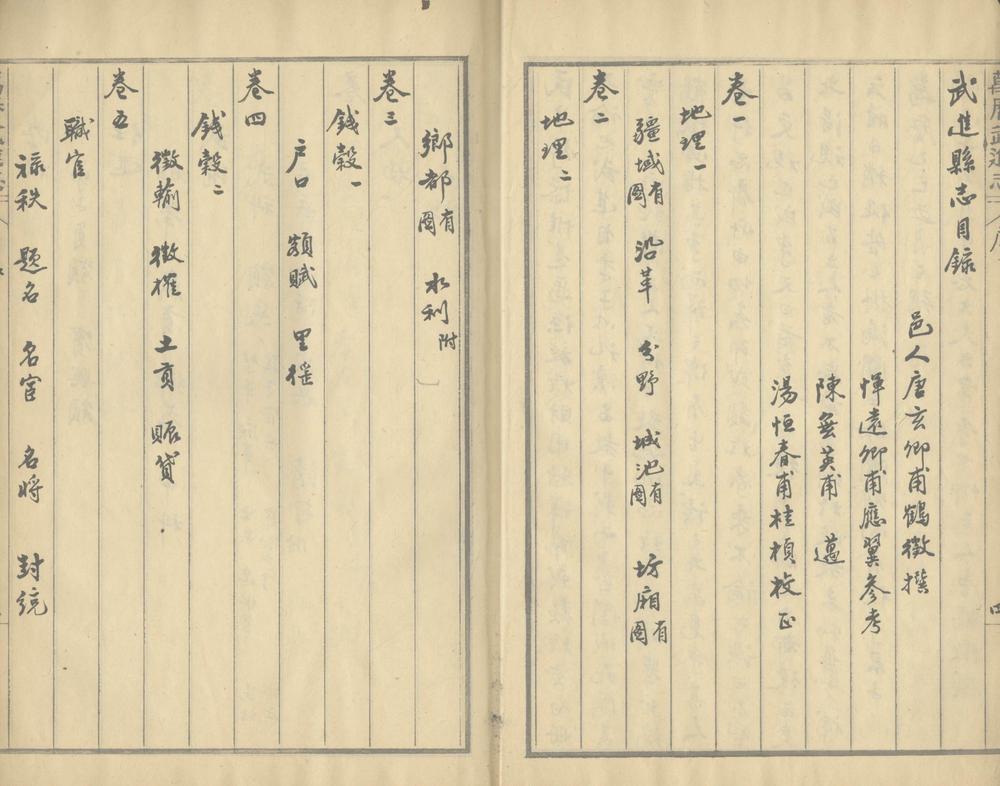 武進縣志目錄
邑人唐玄卿甫鶴徵撰
惲遠卿甫應翼參考
陳無英甫 邁
湯恒春甫桂楨校正
卷一
地理一
疆域有圖 沿革 分野 城池有圖 坊廂有圖
卷二
地理二
鄉都有圖 水利附
卷三
錢穀一
戶口 額賦 里徭
卷四
錢穀二
徵輸 徵榷 土貢 賑貸
卷五
職官
祿秩 題名 名宦 名將 封爵